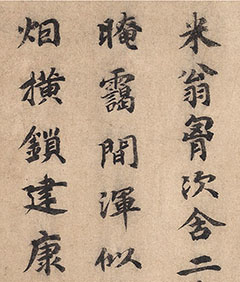 米翁胷次舍二
晻靄間渾似
烟橫鎖建康